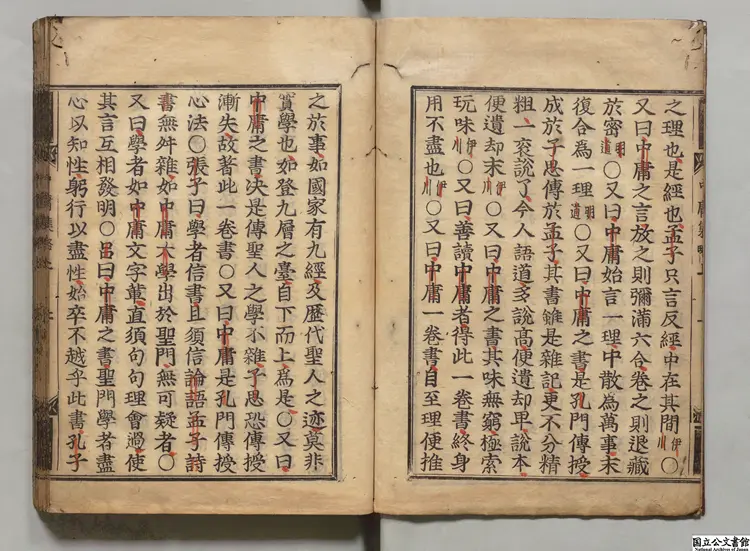 之理也是經也孟子只言反經中在其間伊川〇
又曰中庸之言放之則彌滿六合卷之則退藏
於密明道〇又曰中庸始言一理中散為萬事末
復合為一理明道〇又曰中庸之書是孔門傳授
成於子思傳於孟子其書雖是雜記更不分精
粗一衮說了今人語道多說高便遺却卑說本
便遺却末伊川〇又曰中庸之書其味無窮極索
玩味伊川〇又曰善讀中庸者得此一卷書終身
用不盡也伊川〇又曰中庸一卷書自至理便推
之於事如國家有九經及歷代聖人之迹莫非
實學也如登九層之臺自下而上為是〇又曰
中庸之書决是傳聖人之學不雜子思恐傳授
漸失故著此一卷書〇又曰中庸是孔門傳授
心法〇張子曰學者信書且須信論語孟子詩
書無舛雜如中庸大學出於聖門無可疑者〇
又曰學者如中庸文字軰直須句句理會過使
其言互相發明〇吕曰中庸之書聖門學者盡
心以知性躬行以盡性始卒不越乎此書孔子
国立公文書館
National Archives of Japan